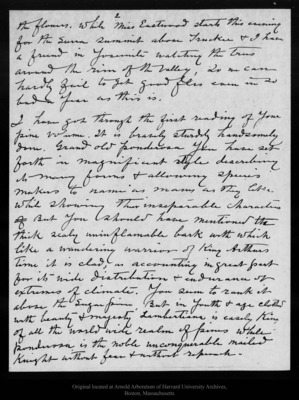 2
the flowers. While Miss Eastwood starts this evening
for the Sierra summit above Truckee & I have
a friend in Yosemite watching the trees
around the rim of the Valley, so we can
hardly fail to get good flos even in so
bad a year as this is.
I have got through the first reading of your
pine volume. It is bravely sturdily handsomely
done. Grand old ponderosa you have set
forth in magnificent style describing
its many forms & allowing species
makers to name as many as they like
while showing their inseparable characters
But you should have mentioned the
thick scaly uninflamable bark with which
like a wandering warrior of King Arthurs
time it is clad, as accounting in great part
for its wide distribution & endurance of
extremes of climate. You seem to rank it
above the Sugar pine. But in youth & age clothed
with beauty & majesty Lambertiana is easily King
of all the world wide realm of pines while
ponderosa is the noble unconquerable mailed
Knight without fear & without reproach.
Original located at Arnold Arboretum of Harvard University Archives,
Boston, Massachusetts